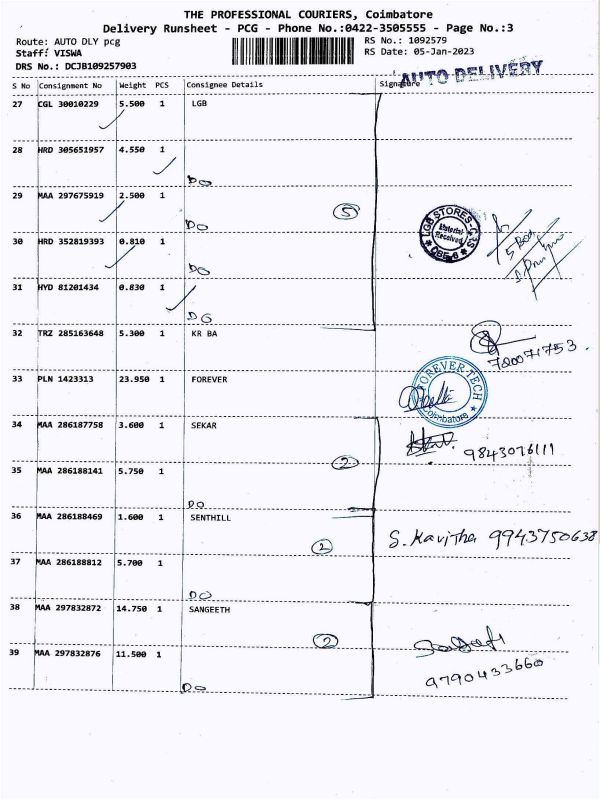 THE PROFESSIONAL COURIERS, Coimbatore
Delivery Runsheet - PCG - Phone No.:0422-3505555 - Page No.:3
Route: AUTO DLY pcg RS No.: 1092579
Staff: VISWA RS Date: 05-Jan-2023
DRS No.: DCJB109257903
AUTO DELIVERY
S No Consignment No Weight PCS Consignee Details Signature
27 CGL 30010229 5.500 1 LGB
28 HRD 305651957 4.550 1
DO
29 MAA 297675919 2.500 1
5
DO
LGB STORES-CJS
Material Received
CBE-6
5 Box
30 HRD 352819393 0.810 1
DO
31 HYD 81201434 0.830 1
DO
32 TRZ 285163648 5.300 1 KR BA
720071753.
33 PLN 1423313 23.950 1 FOREVER
FOREVER TECH
Coimbatore
34 MAA 286187758 3.600 1 SEKAR
9843076111
2
35 MAA 286188141 5.750 1
DO
36 MAA 286188469 1.600 1 SENTHILL
S. Kavitha 9943750638
2
37 MAA 286188812 5.700 1
DO
38 MAA 297832872 14.750 1 SANGEETH
2
39 MAA 297832876 11.500 1
9790433660
DO